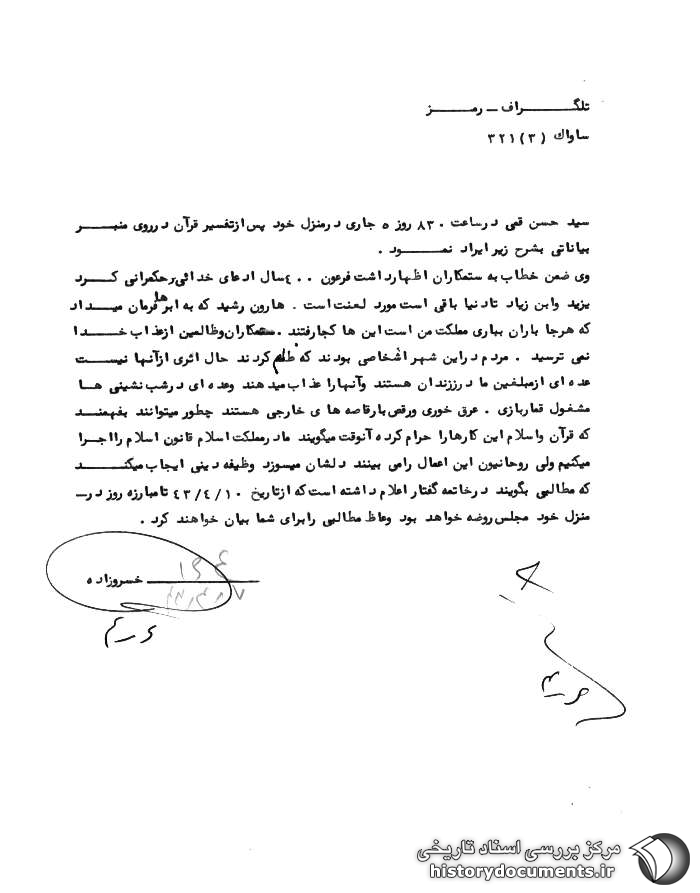 تلگـــــراف ــ رمـــــز
ساواك (۳) ۳۲۱
سید حسن قمی درساعت ۸۳۰ روز ۵ جاری درمنزل خود پس ازتفسیر قرآن درروی منبـــر
بیاناتی بشرح زیر ایراد نمـــود .
وی ضمن خطاب به ستمکاران اظهارداشت فرعون ۴۰۰ سال ادعای خدائی برحکمرانی کـرد
یزید وابن زیاد تادنیا باقی است مورد لعنت است . هارون رشید که به ابرها فرمان میـداد
که هرجا باران بباری مملکت من است این ها کجارفتند . ستمکاران وظالمین ازعذاب خـدا
نمی ترسید . مردم دراین شهر اشخاصی بودند که ظلم کردند حال اثری ازآنها نیسـت
عده ای ازمبلغین ما درزندان هستند وآنهارا عذاب میدهند وعده ای درشب نشینی هـا
مشغول قماربازی . عرق خوری ورقص بارقاصه های خارجی هستند چطور میتوانند بفهمنـد
که قرآن واسلام این کارهارا حرام کرده آنوقت میگویند مادرمملکت اسلام قانون اسلام رااجرا
میکنیم ولی روحانیون این اعمال رامی بینند دلشان میسوزد وظیفه دینی ایجاب میکنـــد
که مطالبی بگویند درخاتمه گفتار اعلام داشته است که ازتاریخ ۴۳/۴/۱۰ تامبارزه روز درـ
منزل خود مجلس روضه خواهد بود وعاظ مطالبی رابرای شما بیان خواهند کرد .
خسروزاده
مرکز بررسی اسناد تاریخی
historydocuments.ir